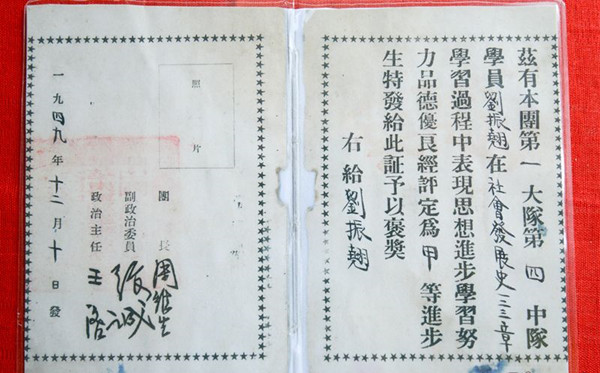 茲有本團第一大隊第四中隊
學員劉振翹在社會發展史三三章
學習過程中表現思想進步學習努
力品德優良經評定為甲等進步
生特發給此証予以褒獎
右給劉振翹
照片
團長 周維生
副政治委員 張誠
政治主任 王啓
一九四九年十二月十日發